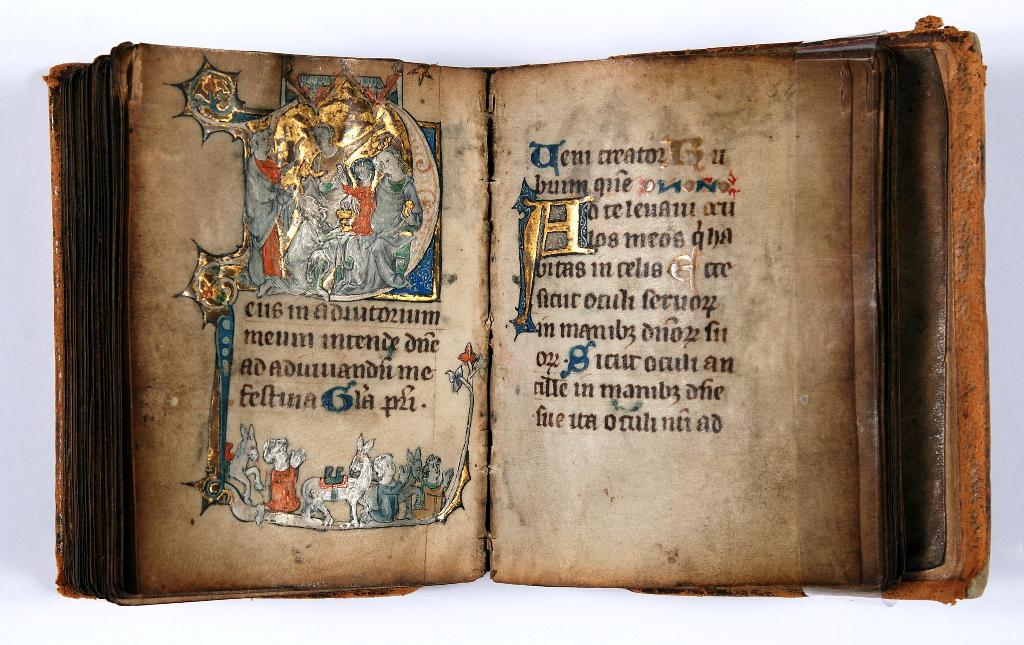 eus in adiutorium
meum intende dn̄e
ad adiuuandū me
festina Gl̄a pr̄i.
Veni creator
buum que
Ad te leuaui ocu
los meos q̇ ha
bitas in celis E cce
sicut oculi seruoꝝ
in manibꝫ dn̄oꝝ su
oꝝ. Sicut oculi an
cille in manibꝫ dn̄e
sue ita oculi nr̄i ad